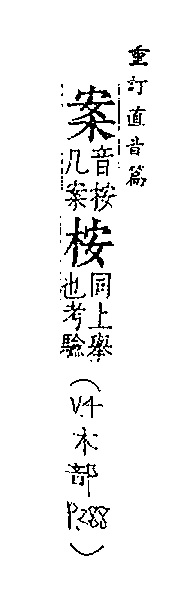 重訂直音篇
案音桉几案桉同上舉也考驗(V.4木部P.288)